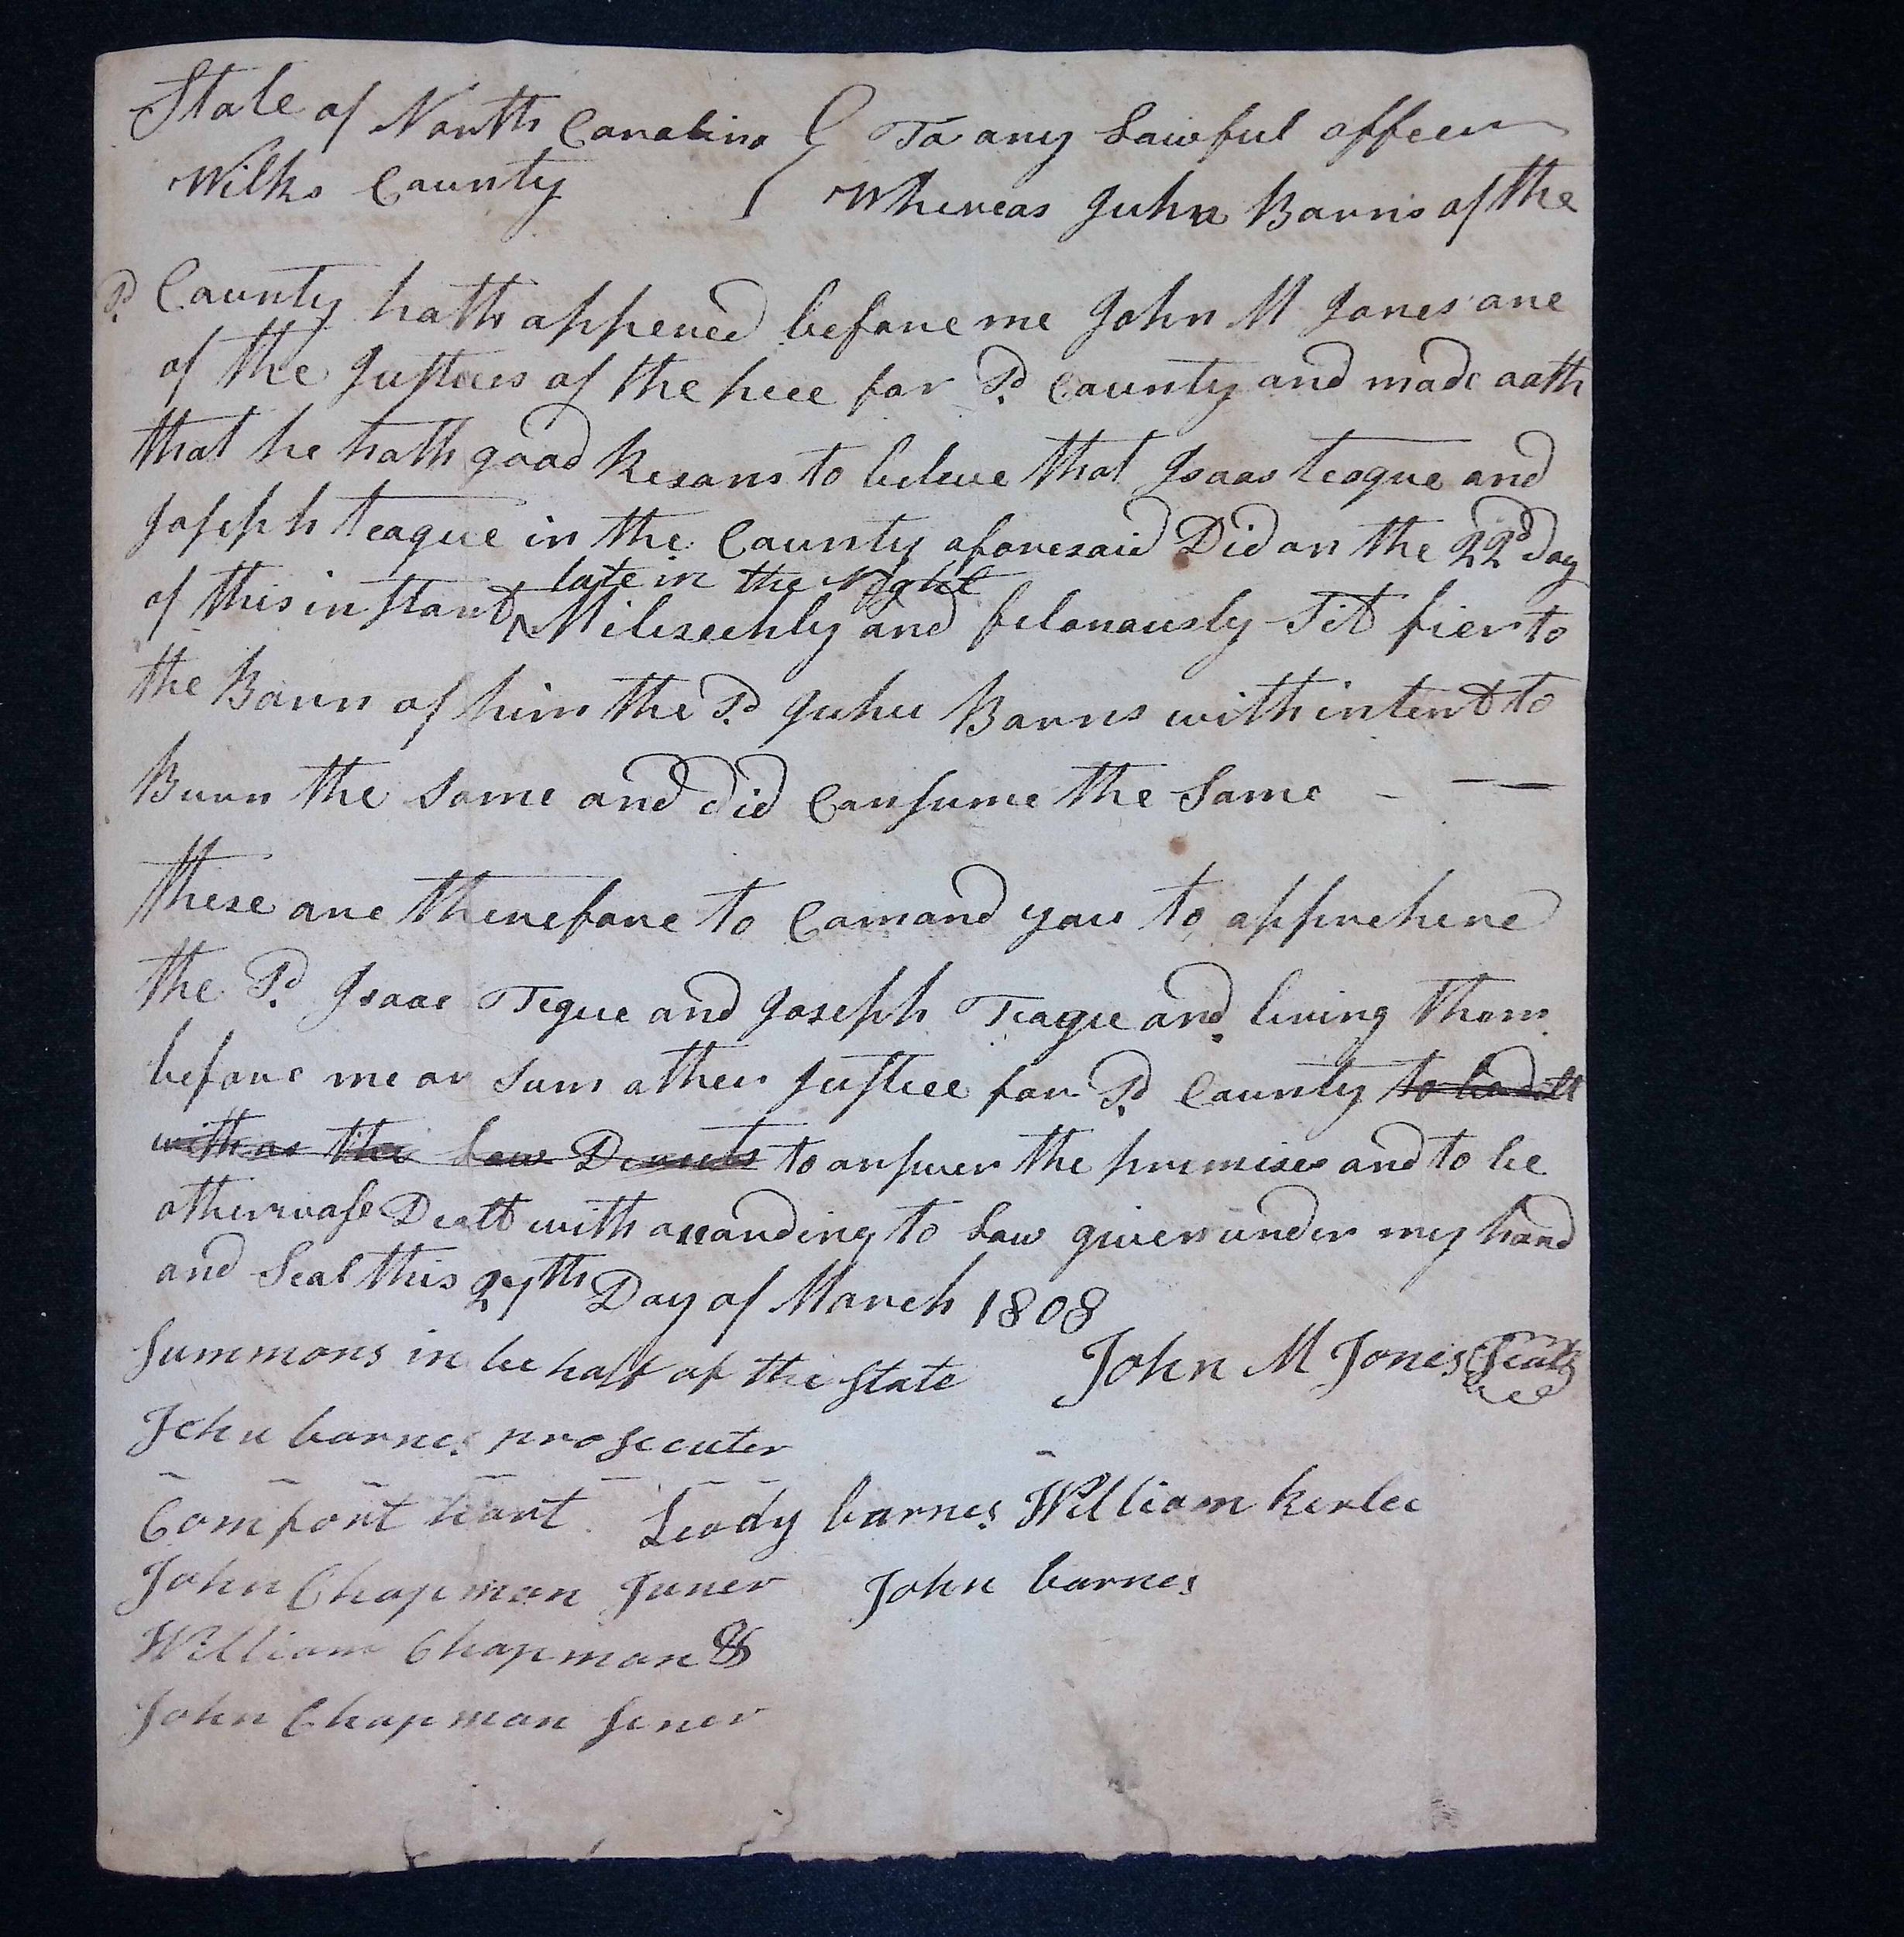 State of North Carolina } To any Lawful offeer
Wilks County } Whereas Jehu Barns of the
Sd County hath appered before me John M Jones one
of the Justeces of the pece for Sd County and made oath
that he hath good Resons to beleve that Isaac teague and
Joseph teague in the County aforesaid Did on the 22d day
late in the Night
of this instant ^ and felonously Sit fier to
the Barn of him the Sd Jehu Barns with intent to
Burn the Same and did Consume the Same - — —
these are therefore to Comand you to apprehend
the Sd Isaac Tegue and Joseph Teague and bring them
before me or Sum other Justice for Sd County to be delt
with as the Law Directs to answer the premises and to be
otherwase Dealt with according to Law given under my hand
and Seal this 27th Day of March 1808
Summons in be half of the State John M Jones Seal
Jehu barnes prosecuter
Comfort hart Leody barnes William Kerlee
John Chapman Juner John barnes
William Chapman &
John Chapman Sener